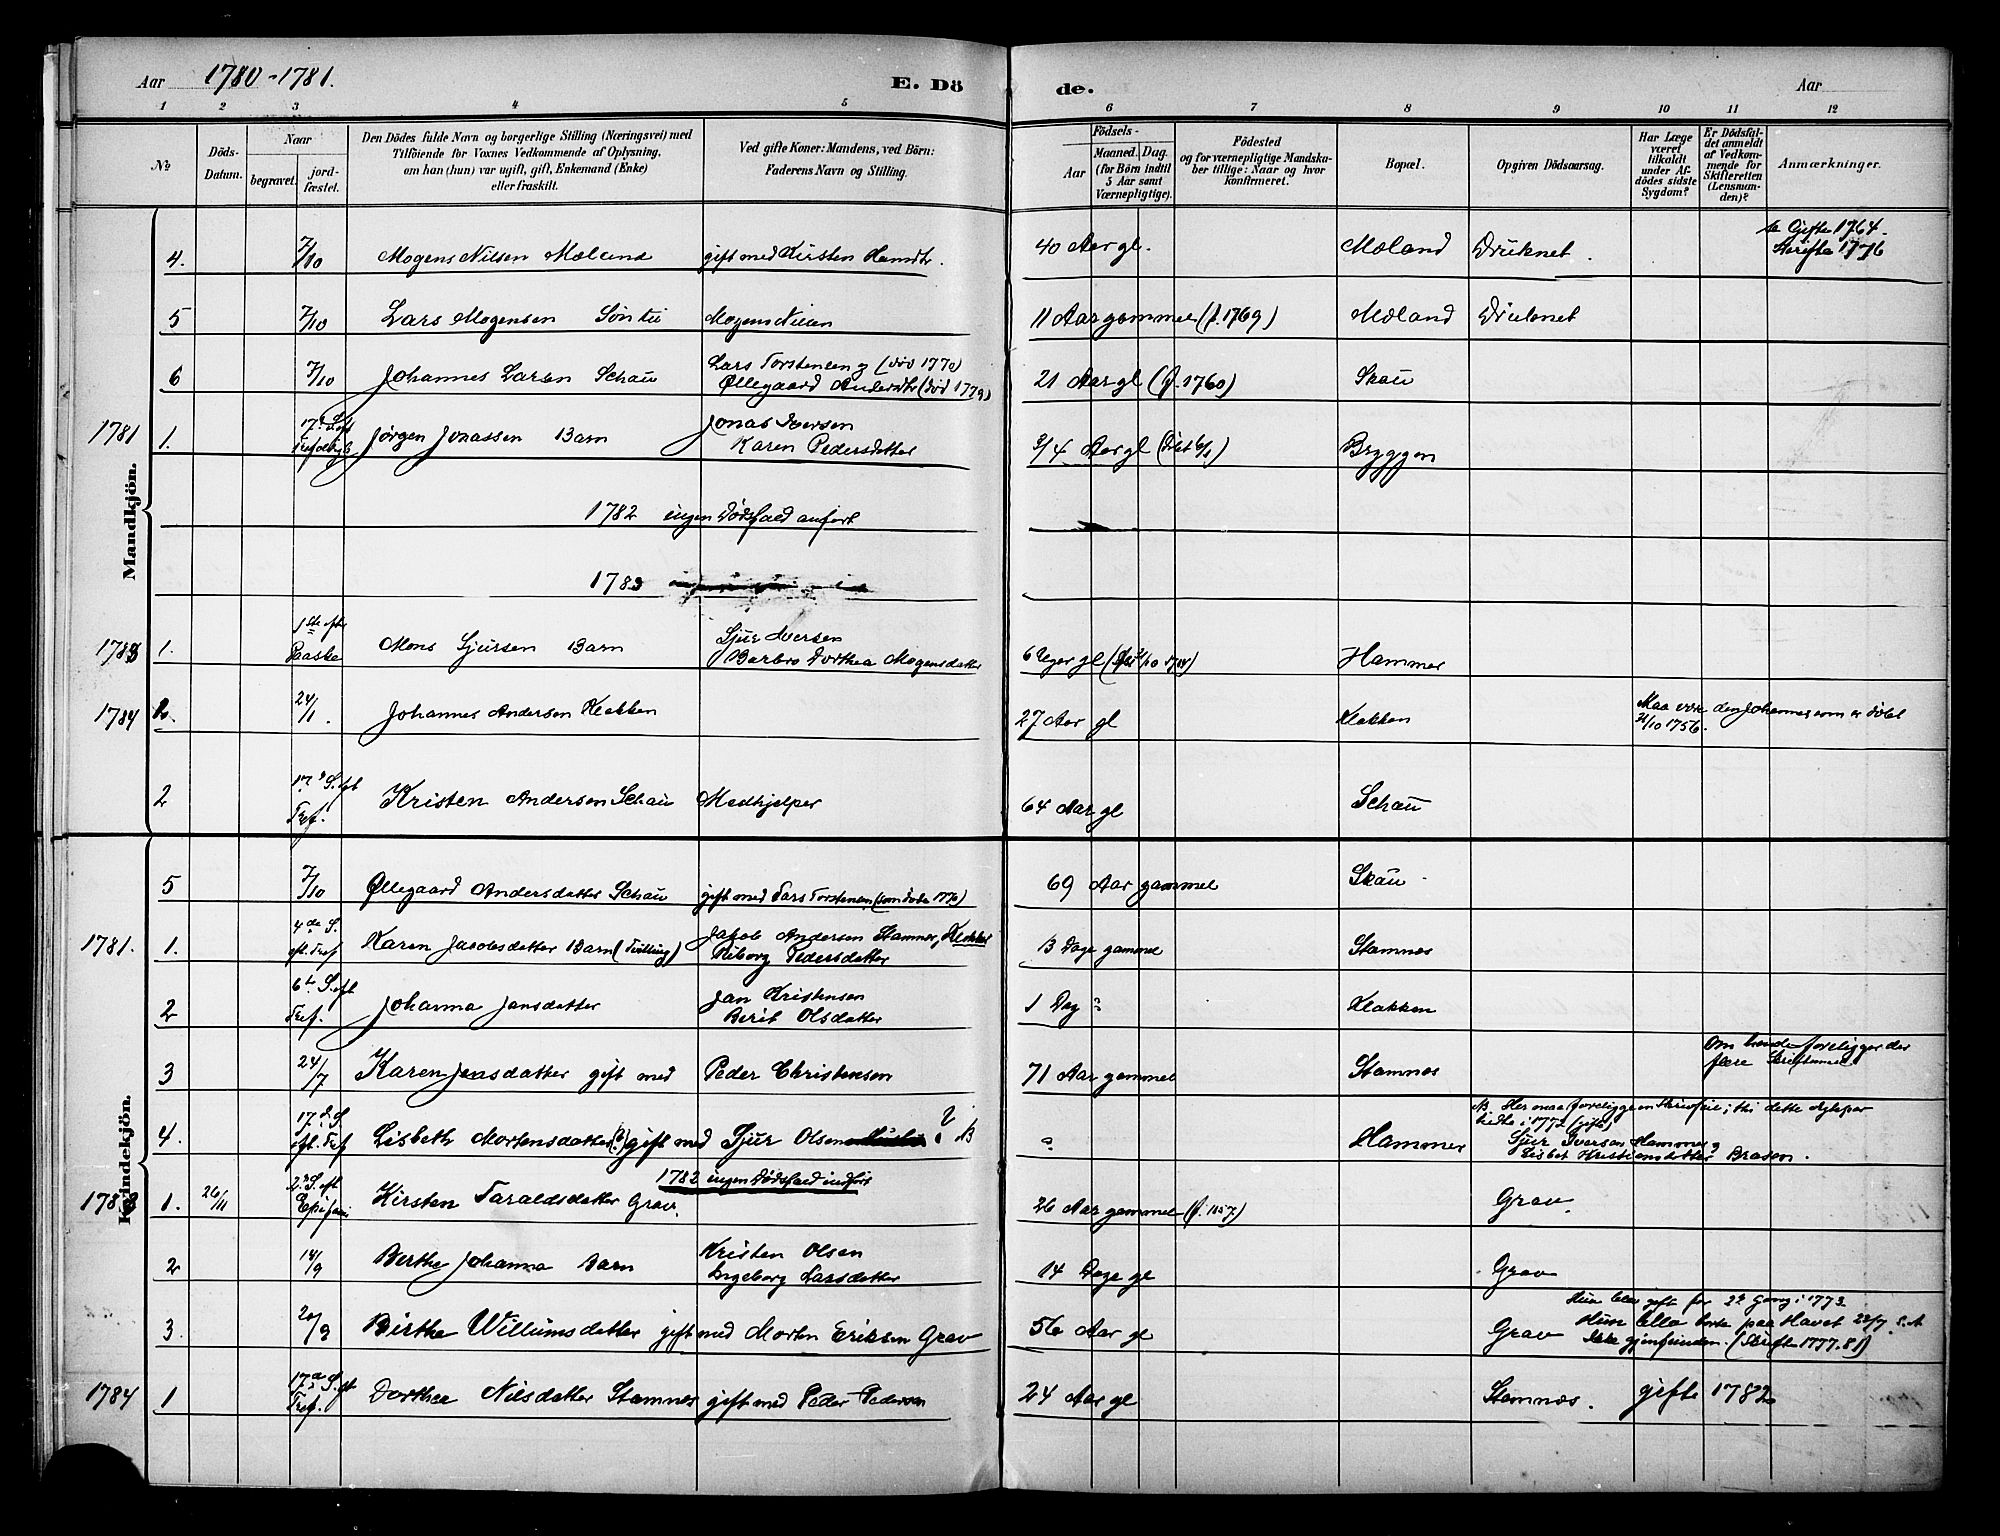 Aar 1780-1781.
E. Dö de.
Aar
1 2 3 4 5 6 7 8 9 10 11 12
No
Döds-Datum.
Naar
begravet.
jord-fæstet.
Den Dödes fulde Navn og borgerlige Stilling (Næringsvei) med
Tilföiende for Voxnes Vedkommende af Oplysning,
om han (hun) var ugift, gift, Enkemand (Enke)
eller fraskilt.
Ved gifte Koner: Mandens, ved Börn:
Faderens Navn og Stilling.
Födsels-
Aar
Maaned. Dag.
(for Börn indtil
5 Aar samt
Værnepligtige).
Födested
og for værnepligtige Mandska-
ber tillige: Naar og hvor
konfirmeret.
Bopæl.
Opgiven Dödsaarsag.
Har Læge
været
tilkaldt
under Af-
dödes sidste
Sygdom?
Er Dödsfal-
det anmeldt
af Vedkom-
mende for
Skifteretten
(Lensman-
den)?
Anmærkninger.
Mandkjön.
4. 7/10 Mogens Nilsen Mæland gift med Kirsten Hansdtr. 40 Aar gl. Mæland Druknet. Gifte 1764. Skifte 1776
5 7/10 Lars Mogensen Söntu Mogens Nilsen 11 Aar gammel (f. 1769) Mæland Druknet
6 7/10 Johannes Larsen Schau Lars Torstensen (död 1770)
Øllegaard Andersdtr (död 1779) 21 Aar gl (f. 1760) Skau
1781 1. 17 Jørgen Jonassen Barn Jonas Iversen
Karen Pedersdatter 3/4 Aar gl Bryggen
1782 ingen Dødsfald anfört
1783
1783 1. 1ste efter
Paaske Mons Sjursen Barn Sjur Iversen
Barbro Dorthea Mogensdatter 6 Uger gl Hammer
1784 24/1. Johannes Andersen Klakken 27 Aar gl Klakken Maa være den Johannes som er döbt
31/10 1756.
2 17. S. eft
Tref. Kristen Andersen Schau Medhjelper 64 Aar gl Schau
Kvindekjön.
5 7/10 Øllegaard Andersdatter Schau gift med Lars Torstensen (som döde 1770) 69 Aar gammel Skau
1781. 1. 4de S.
eft. Tref Karen Jacobsdatter Barn (Tvilling) Jakob Andersen Stamnes, Klakken
Riborg Pedersdatter 13 Dage gammel Stamnes
2 6te S. eft
Tref. Johanna Jansdatter Jan Kristensen
Berit Olsdatter 1 Dag " Klakken
3 24/7 Karen Jonsdatter gift med Peder Christensen 71 Aar gammel Stamnes Om hende foreligger der
flere
4. 17de S.
eft. Tref Lisbeth Mortensdatter (?) gift med Sjur Olsen ? NB " Hammer NB Her maa foreligge en Skrivfeil; thi dette Ægtepar
1772 (gift)
Sjur Iversen Hammer og
Lisbet Kristiansdatter Brasen.
1782 ingen Dødsfald indfört
1783 1. 26/11 2. S. eft
Epifani Kirsten Taraldsdatter Grav. 26 Aar gammel (f. 1757) Grav.
2 14/9 Berthe Johanna Barn Kristen Olsen
Ingeborg Larsdatter 14 Dage gl Grav
3. 20/9 Birthe Willumsdatter gift med Morten Eriksen Grav 56 Aar gl Grav Hun blev gift for 2n Gang i 1773
Hun blev borte paa Havet 22/7.
Ikke gjenfunden. (Skifte 1777.81)
1784 1 17de S. eft
Tref. Dorthea Nilsdatter Stamnes gift med Peder Pedersen 24 Aar gl Stamnes. gifte 1782